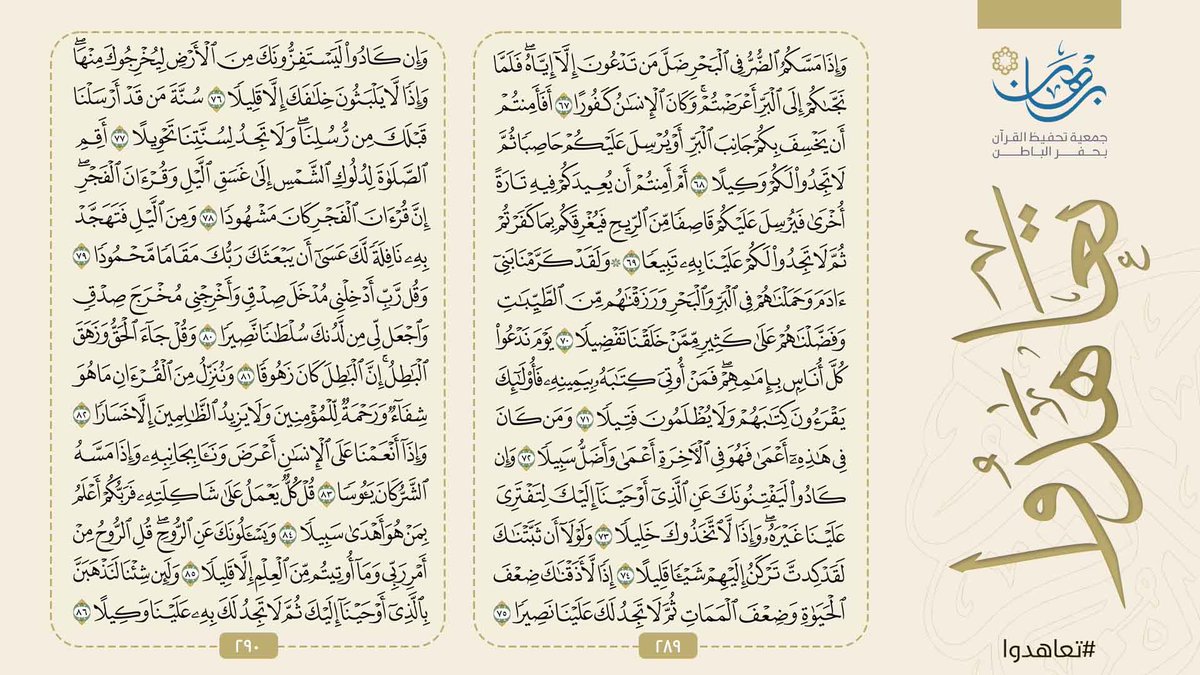 برهان
جمعية تحفيظ القرآن
بحفر الباطن
تعاهدوا
#تعاهدوا
وَإِذَا مَسَّكُمُ ٱلضُّرُّ فِي ٱلۡبَحۡرِ ضَلَّ مَن تَدۡعُونَ إِلَّآ إِيَّاهُۖ فَلَمَّا
نَجَّىٰكُمۡ إِلَى ٱلۡبَرِّ أَعۡرَضۡتُمۡۚ وَكَانَ ٱلۡإِنسَٰنُ كَفُورًا ٦٧ أَفَأَمِنتُمۡ
أَن يَخۡسِفَ بِكُمۡ جَانِبَ ٱلۡبَرِّ أَوۡ يُرۡسِلَ عَلَيۡكُمۡ حَاصِبٗا ثُمَّ
لَا تَجِدُواْ لَكُمۡ وَكِيلًا ٦٨ أَمۡ أَمِنتُمۡ أَن يُعِيدَكُمۡ فِيهِ تَارَةً
أُخۡرَىٰ فَيُرۡسِلَ عَلَيۡكُمۡ قَاصِفٗا مِّنَ ٱلرِّيحِ فَيُغۡرِقَكُم بِمَا كَفَرۡتُمۡ
ثُمَّ لَا تَجِدُواْ لَكُمۡ عَلَيۡنَا بِهِۦ تَبِيعٗا ٦٩ ۞ وَلَقَدۡ كَرَّمۡنَا بَنِيٓ
ءَادَمَ وَحَمَلۡنَٰهُمۡ فِي ٱلۡبَرِّ وَٱلۡبَحۡرِ وَرَزَقۡنَٰهُم مِّنَ ٱلطَّيِّبَٰتِ
وَفَضَّلۡنَٰهُمۡ عَلَىٰ كَثِيرٖ مِّمَّنۡ خَلَقۡنَا تَفۡضِيلٗا ٧٠ يَوۡمَ نَدۡعُواْ
كُلَّ أُنَاسِۭ بِإِمَٰمِهِمۡۖ فَمَنۡ أُوتِيَ كِتَٰبَهُۥ بِيَمِينِهِۦ فَأُوْلَٰٓئِكَ
يَقۡرَءُونَ كِتَٰبَهُمۡ وَلَا يُظۡلَمُونَ فَتِيلٗا ٧١ وَمَن كَانَ
فِي هَٰذِهِۦٓ أَعۡمَىٰ فَهُوَ فِي ٱلۡأٓخِرَةِ أَعۡمَىٰ وَأَضَلُّ سَبِيلٗا ٧٢ وَإِن
كَادُواْ لَيَفۡتِنُونَكَ عَنِ ٱلَّذِيٓ أَوۡحَيۡنَآ إِلَيۡكَ لِتَفۡتَرِيَ
عَلَيۡنَا غَيۡرَهُۥۖ وَإِذٗا لَّٱتَّخَذُوكَ خَلِيلٗا ٧٣ وَلَوۡلَآ أَن ثَبَّتۡنَٰكَ
لَقَدۡ كِدتَّ تَرۡكَنُ إِلَيۡهِمۡ شَيۡـٔٗا قَلِيلًا ٧٤ إِذٗا لَّأَذَقۡنَٰكَ ضِعۡفَ
ٱلۡحَيَوٰةِ وَضِعۡفَ ٱلۡمَمَاتِ ثُمَّ لَا تَجِدُ لَكَ عَلَيۡنَا نَصِيرٗا ٧٥
٢٨٩
وَإِن كَادُواْ لَيَسۡتَفِزُّونَكَ مِنَ ٱلۡأَرۡضِ لِيُخۡرِجُوكَ مِنۡهَاۖ
وَإِذٗا لَّا يَلۡبَثُونَ خِلَٰفَكَ إِلَّا قَلِيلٗا ٧٦ سُنَّةَ مَن قَدۡ أَرۡسَلۡنَا
قَبۡلَكَ مِن رُّسُلِنَاۖ وَلَا تَجِدُ لِسُنَّتِنَا تَحۡوِيلًا ٧٧ أَقِمِ
ٱلصَّلَوٰةَ لِدُلُوكِ ٱلشَّمۡسِ إِلَىٰ غَسَقِ ٱلَّيۡلِ وَقُرۡءَانَ ٱلۡفَجۡرِۖ
إِنَّ قُرۡءَانَ ٱلۡفَجۡرِ كَانَ مَشۡهُودٗا ٧٨ وَمِنَ ٱلَّيۡلِ فَتَهَجَّدۡ
بِهِۦ نَافِلَةٗ لَّكَ عَسَىٰٓ أَن يَبۡعَثَكَ رَبُّكَ مَقَامٗا مَّحۡمُودٗا ٧٩
وَقُل رَّبِّ أَدۡخِلۡنِي مُدۡخَلَ صِدۡقٖ وَأَخۡرِجۡنِي مُخۡرَجَ صِدۡقٖ
وَٱجۡعَل لِّي مِن لَّدُنكَ سُلۡطَٰنٗا نَّصِيرٗا ٨٠ وَقُلۡ جَآءَ ٱلۡحَقُّ وَزَهَقَ
ٱلۡبَٰطِلُۚ إِنَّ ٱلۡبَٰطِلَ كَانَ زَهُوقٗا ٨١ وَنُنَزِّلُ مِنَ ٱلۡقُرۡءَانِ مَا هُوَ
شِفَآءٞ وَرَحۡمَةٞ لِّلۡمُؤۡمِنِينَ وَلَا يَزِيدُ ٱلظَّٰلِمِينَ إِلَّا خَسَارٗا ٨٢
وَإِذَآ أَنۡعَمۡنَا عَلَى ٱلۡإِنسَٰنِ أَعۡرَضَ وَنَـَٔا بِجَانِبِهِۦ وَإِذَا مَسَّهُ
ٱلشَّرُّ كَانَ يَـُٔوسٗا ٨٣ قُلۡ كُلّٞ يَعۡمَلُ عَلَىٰ شَاكِلَتِهِۦ فَرَبُّكُمۡ أَعۡلَمُ
بِمَنۡ هُوَ أَهۡدَىٰ سَبِيلٗا ٨٤ وَيَسۡـَٔلُونَكَ عَنِ ٱلرُّوحِۖ قُلِ ٱلرُّوحُ مِنۡ
أَمۡرِ رَبِّي وَمَآ أُوتِيتُم مِّنَ ٱلۡعِلۡمِ إِلَّا قَلِيلٗا ٨٥ وَلَئِن شِئۡنَا لَنَذۡهَبَنَّ
بِٱلَّذِيٓ أَوۡحَيۡنَآ إِلَيۡكَ ثُمَّ لَا تَجِدُ لَكَ بِهِۦ عَلَيۡنَا وَكِيلًا ٨٦
٢٩٠